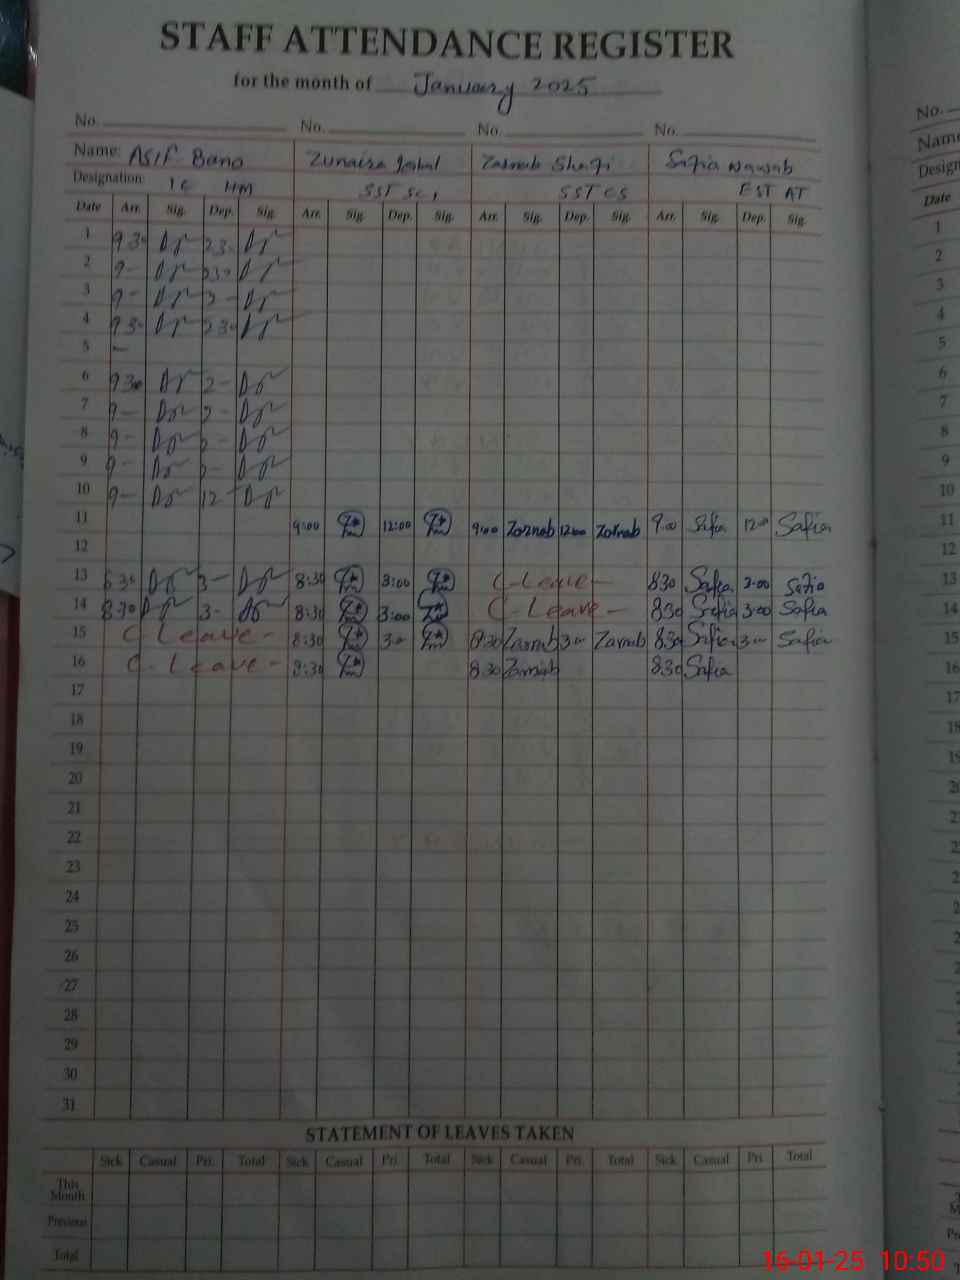 STAFF ATTENDANCE REGISTER
for the month of January 2025
No. No. No. No.
Name: Asif Bano Zunaira Iqbal Zarnab Shafi Safia Nawab
Designation: IC HM SST Sc, SST CS EST AT
Date Arr. Sig. Dep. Sig. Arr. Sig. Dep. Sig. Arr. Sig. Dep. Sig. Arr. Sig. Dep. Sig.
1 930 230
2 9- 230
3 9- 2-
4 930 230
5 -
6 930 2-
7 9- 2-
8 9- 2-
9 9- 2-
10 9- 12
11 9:00 12:00 9:00 Zarnab 12:00 Zarnab 9:00 Safia 12:00 Safia
12
13 830 3- 8:30 3:00 C-Leave- 830 Safia 3:00 Safia
14 8:30 3- 8:30 3:00 C-Leave- 830 Safia 3:00 Safia
15 C Leave- 8:30 3:00 8:30 Zarnab 3:00 Zarnab 8:30 Safia 3:00 Safia
16 C-Leave- 8:30 8:30 Zarnab 8:30 Safia
17
18
19
20
21
22
23
24
25
26
27
28
29
30
31
STATEMENT OF LEAVES TAKEN
Sick Casual Pri. Total Sick Casual Pri. Total Sick Casual Pri. Total Sick Casual Pri. Total
This Month
Previous
Total
No.
Name
Design
Date
1
2
3
4
5
6
7
8
9
10
11
12
13
14
15
16
17
18
19
20
16-01-25 10:50